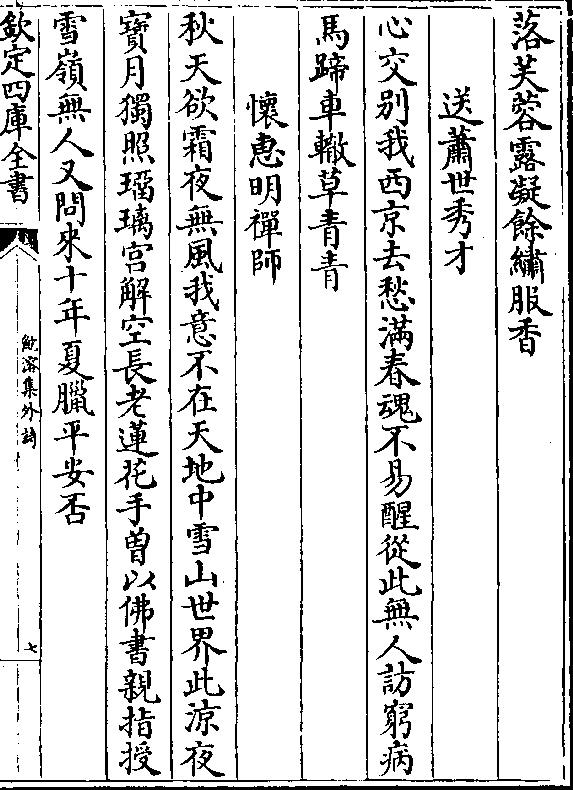 落芙蓉露凝餘繡服香
送蕭世秀才
心交别我西京去愁滿春魂不易醒從此無人訪窮病
馬蹄車轍草青青
懷惠明禪師
秋天欲霜夜無風我意不在天地中雪山世界此涼夜
寶月獨照瑠璃宫解空長老蓮花手曽以佛書親指授
雪嶺無人又問來十年夏臘平安否
欽定四庫全書
鮑溶集外詩
七